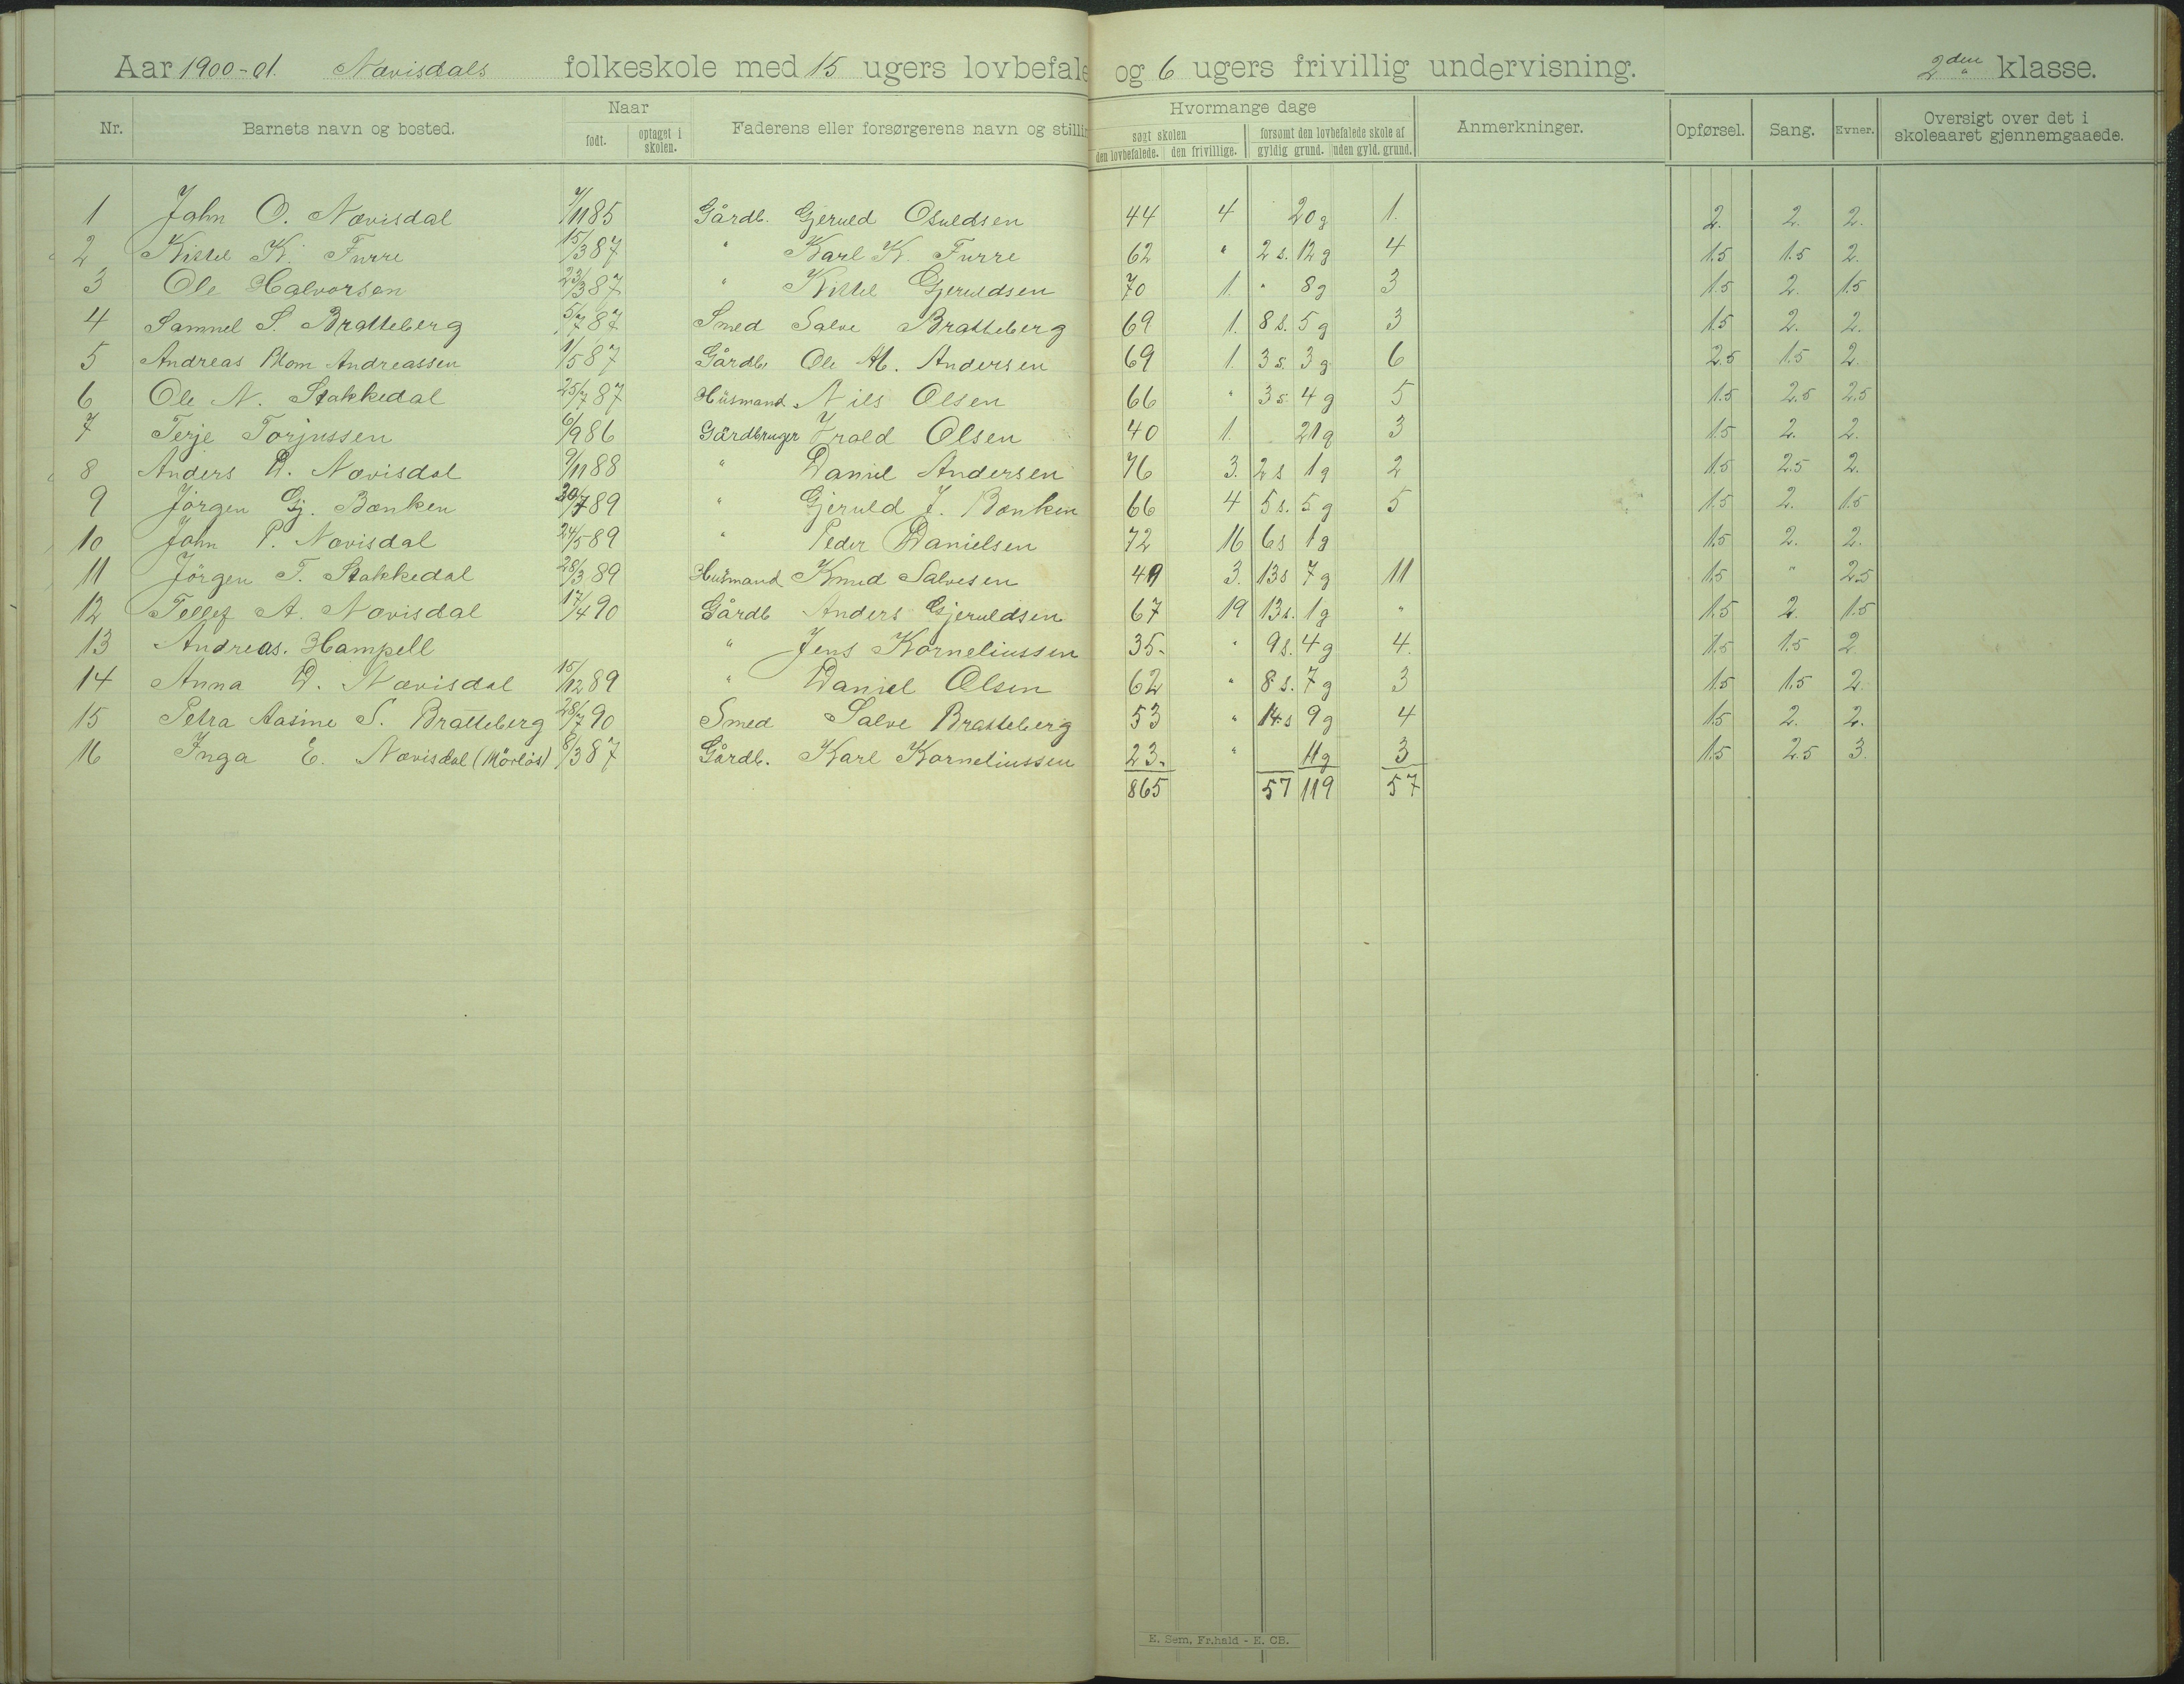 Aar 1900-01. Nævisdals folkeskole med 15 ugers lovbefale og 6 ugers frivillig undervisning. 2den klasse.
Nr. Barnets navn og bosted. Naar født. optaget i skolen. Faderens eller forsørgerens navn og stilli Hvormange dage søgt skolen den lovbefalede. den frivillige. forsømt den lovbefalede skole af gyldig grund. uden gyld. grund. Anmerkninger. Opførsel. Sang. Evner. Oversigt over det i skoleaaret gjennemgaaede.
1 John O. Nævisdal 4/11 85 Gårdb. Gjeruld Osuldsen 44 4 20 g 1. 2. 2. 2.
2 Kittel K. Furre 15/3 87 " Karl K. Furre 62 " 2 s. 12 g 4 1.5 1.5 2.
3 Ole Halvorsen 23/3 87 " Kittel Gjeruldsen 70 1. " 8 g 3 1.5 2. 1.5
4 Samuel S. Bratteberg 5/7 87 Smed Salve Bratteberg 69 1. 8 s. 5 g 3 1.5 2. 2.
5 Andreas Blom Andreassen 1/5 87 Gårdb. Ole M. Andersen 69 1. 3 s. 3 g 6 2.5 1.5 2.
6 Ole N. Stakkedal 25/7 87 Husmand Nils Olsen 66 " 3 s 4 g 5 1.5 2.5 2.5
7 Terje Torjussen 6/9 86 Gårdbruger Olsen 40 1. 21 g 3 1.5 2. 2.
8 Anders D. Nævisdal 9/11 88 " Daniel Andersen 76 3. 2 s 1 g 2 1.5 2.5 2.
9 Jörgen Gj. Bænken 20/7 89 " Gjeruld J. Bænken 66 4 5 s. 5 g 5 1.5 2. 1.5
10 John P. Nævisdal 24/5 89 " Peder Danielsen 72 16 6 s 1 g 1.5 2. 2.
11 Jörgen T. Stakkedal 28/3 89 Husmand Knud Salvesen 49 3. 13 s 7 g 11 1.5 " 2.5
12 Tellef A. Nævisdal 17/4 90 Gårdb Anders Gjeruldsen 67 19 13 s. 1 g " 1.5 2. 1.5
13 Andreas. Hampell " Jens Korneliussen 35. " 9 s. 4 g 4. 1.5 1.5 2.
14 Anna D. Nævisdal 15/12 89 " Daniel Olsen 62 " 8 s. 7 g 3 1.5 1.5 2.
15 Petra Aasine S. Bratteberg 28/7 90 Smed Salve Bratteberg 53 " 14 s 9 g 4 1.5 2. 2.
16 Inga E. Nævisdal (Mörlös) 8/3 87 Gårdb. Karl Korneliussen 23. " 11 g 3 1.5 2.5 3.
865 57 119 57
E. Sem, Fr.hald - E. CB.